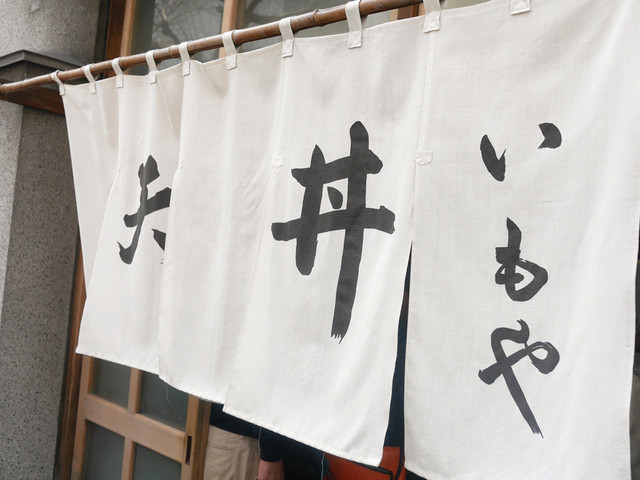 天丼
いもや